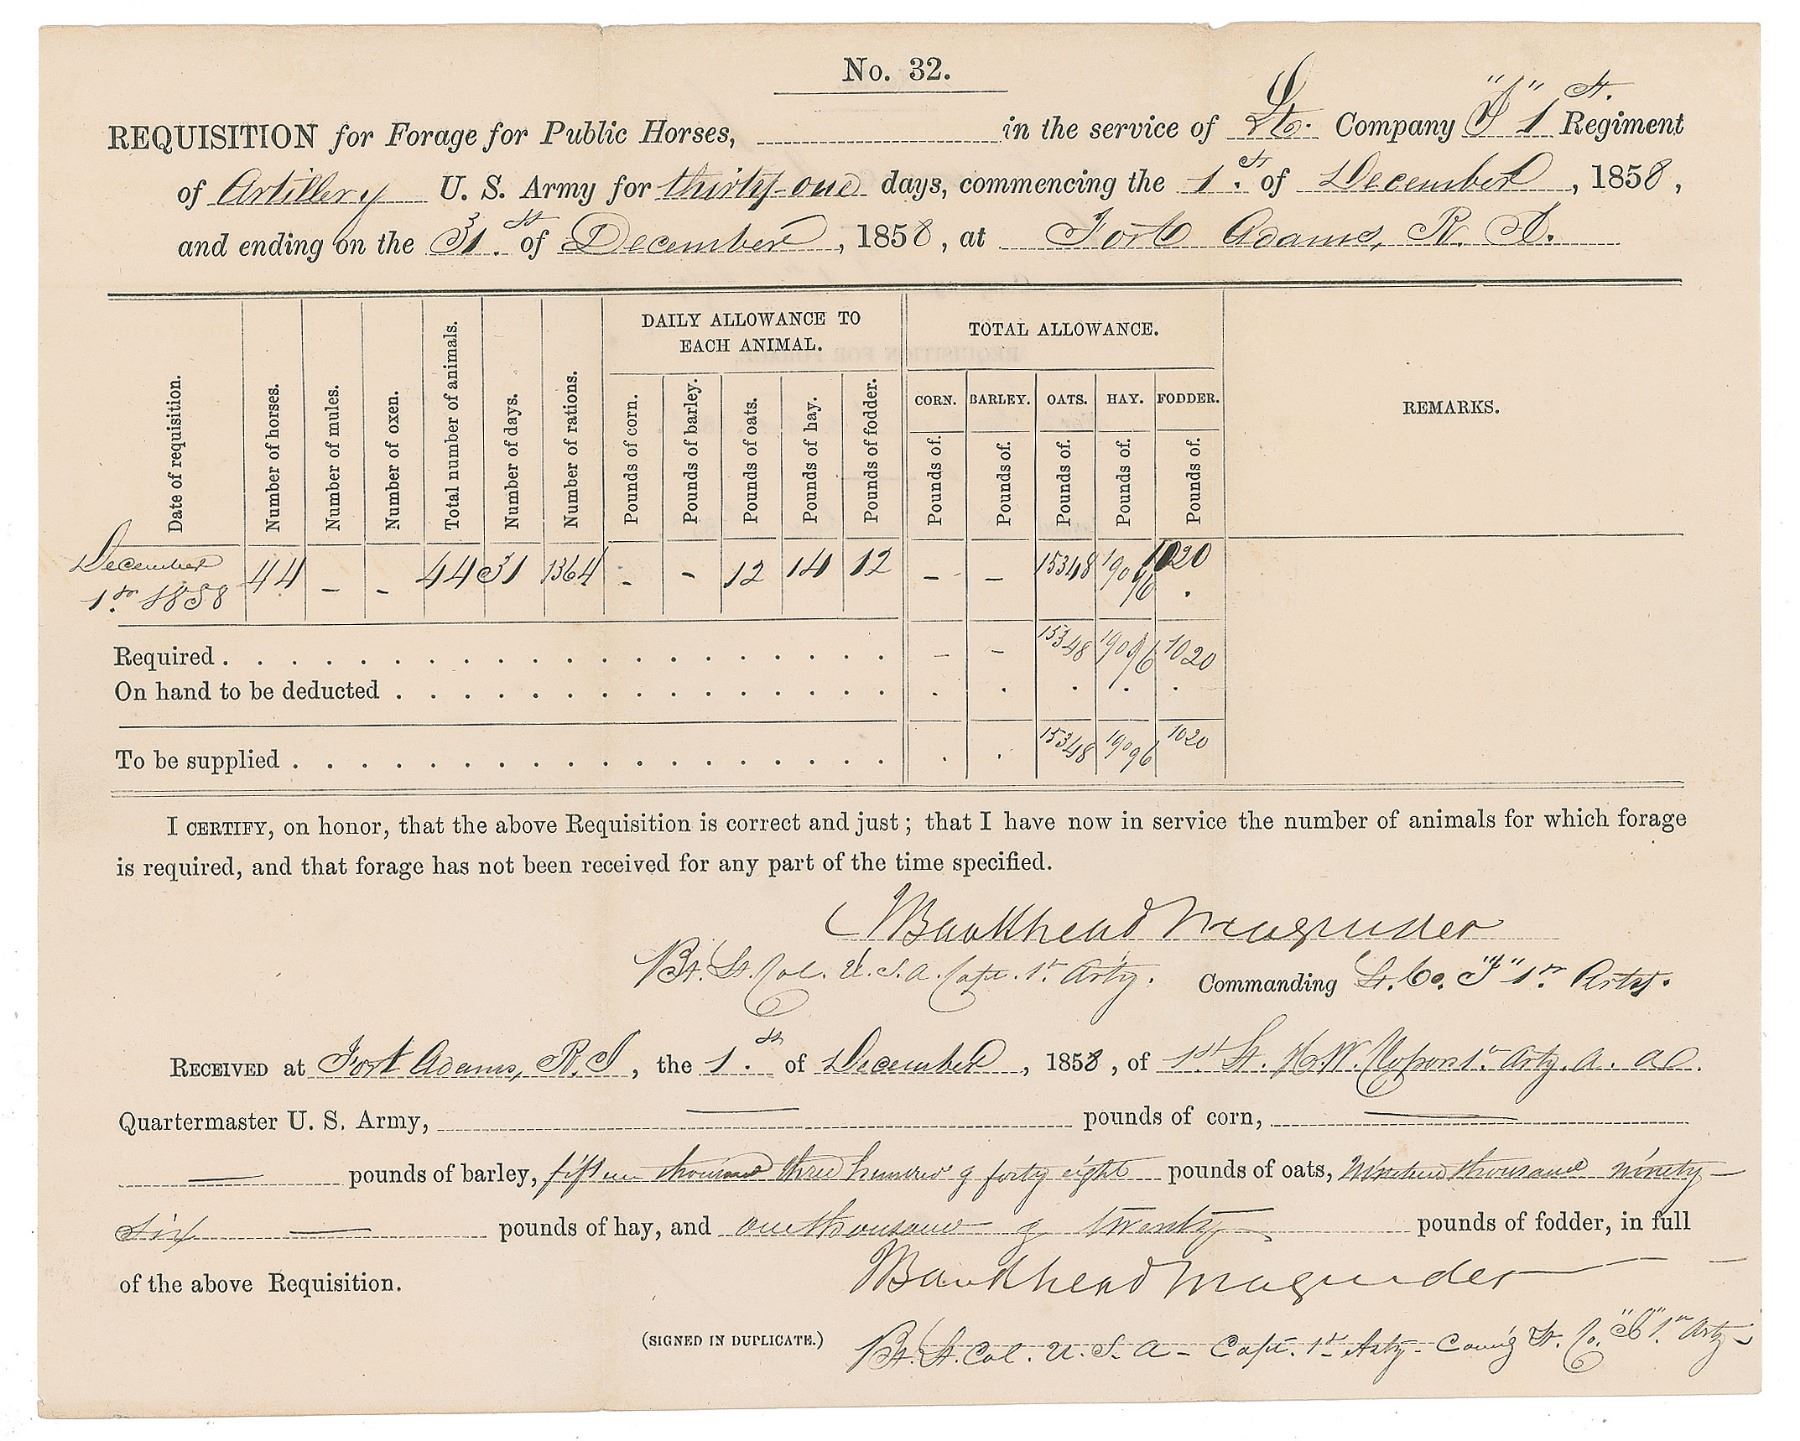 No. 32.
REQUISITION for Forage for Public Horses, in the service of Lt. Company "I" 1st. Regiment
of Artillery U. S. Army for thirty-one days, commencing the 1st. of December, 1858,
and ending on the 31st. of December, 1858, at Fort Adams, R. I.
Date of requisition. Number of horses. Number of mules. Number of oxen. Total number of animals. Number of days. Number of rations. DAILY ALLOWANCE TO EACH ANIMAL. TOTAL ALLOWANCE. REMARKS.
CORN. BARLEY. OATS. HAY. FODDER.
Pounds of corn. Pounds of barley. Pounds of oats. Pounds of hay. Pounds of fodder. Pounds of. Pounds of. Pounds of. Pounds of. Pounds of.
December 44 - - 44 31 1364 - - 12 14 12 - - 15348 19096 1020
1st. 1858
Required - - 15348 19096 1020
On hand to be deducted
To be supplied 15348 19096 1020
I CERTIFY, on honor, that the above Requisition is correct and just; that I have now in service the number of animals for which forage
is required, and that forage has not been received for any part of the time specified.
J Bankhead Magruder
Bt. Lt. Col. U.S.A. Capt. 1st Arty. Commanding Lt. Co. "I" 1st. Arty.
RECEIVED at Fort Adams, R. I, the 1st. of December, 1858, of 1st Lt. 1st. Arty. A. A.
Quartermaster U. S. Army, — pounds of corn, —
— pounds of barley, fifteen thousand three hundred & forty eight pounds of oats, Nineteen thousand ninety-
six — pounds of hay, and one thousand & twenty pounds of fodder, in full
of the above Requisition.
J Bankhead Magruder
(SIGNED IN DUPLICATE.) Bt. Lt. Col. U. S. A - Capt. 1st Arty - Comd'g Lt. Co. "I" 1st. Arty-